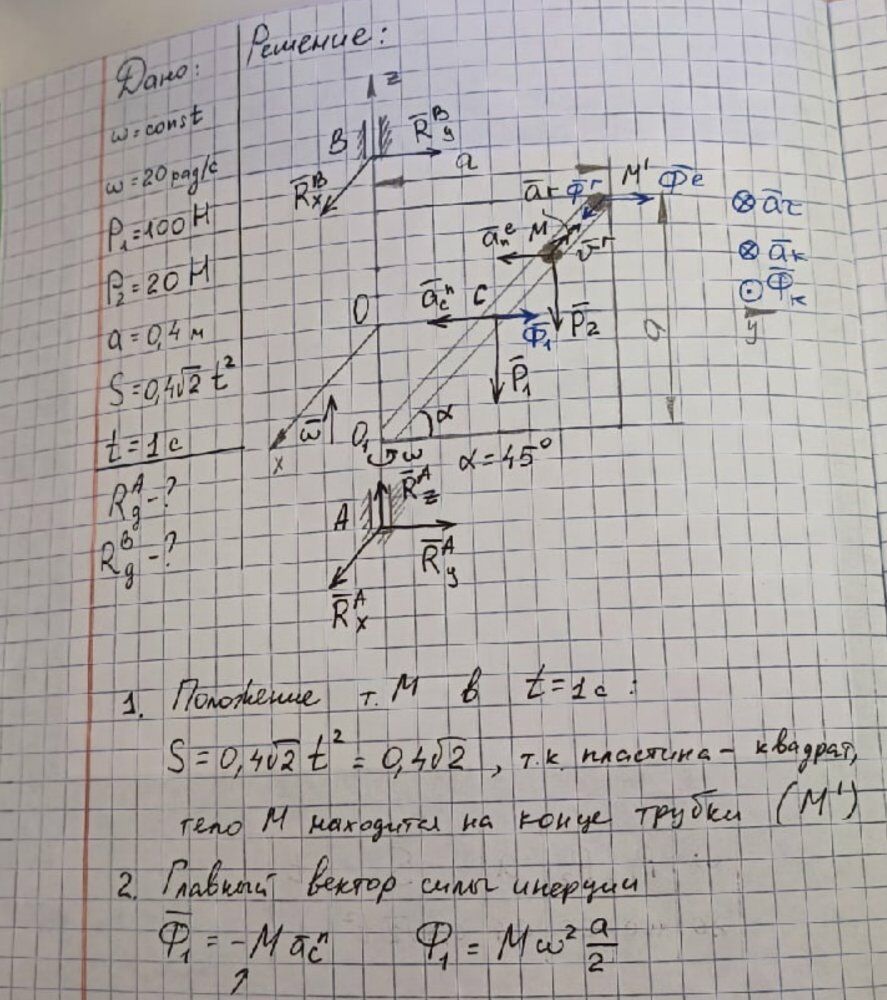 Дано:
ω = const
ω = 20 рад/с
P₁ = 100 Н
P₂ = 20 Н
a = 0,4 м
S = 0,4√2 t²
t = 1 с
R_g^A - ?
R_g^B - ?
Решение:
z
B
R̄_y^B
R̄_x^B
a
ā_r
Φ̄^r
M'
Φ̄^e
ā_n^e
M
v̄^r
⊗ ā_r
⊗ ā_k
⊙ Φ̄_k
O
ā_c^n
C
Φ̄₁
P̄₂
a
y
P̄₁
x
ω̄
O₁
α
ω
α = 45°
A
R̄_z^A
R̄_y^A
R̄_x^A
1. Положение т. M в t = 1 с:
S = 0,4√2 t² = 0,4√2 , т.к. пластина - квадрат,
тело M находится на конце трубки (M')
2. Главный вектор силы инерции
Φ̄₁ = -M ā_c^n Φ₁ = M ω² a/2